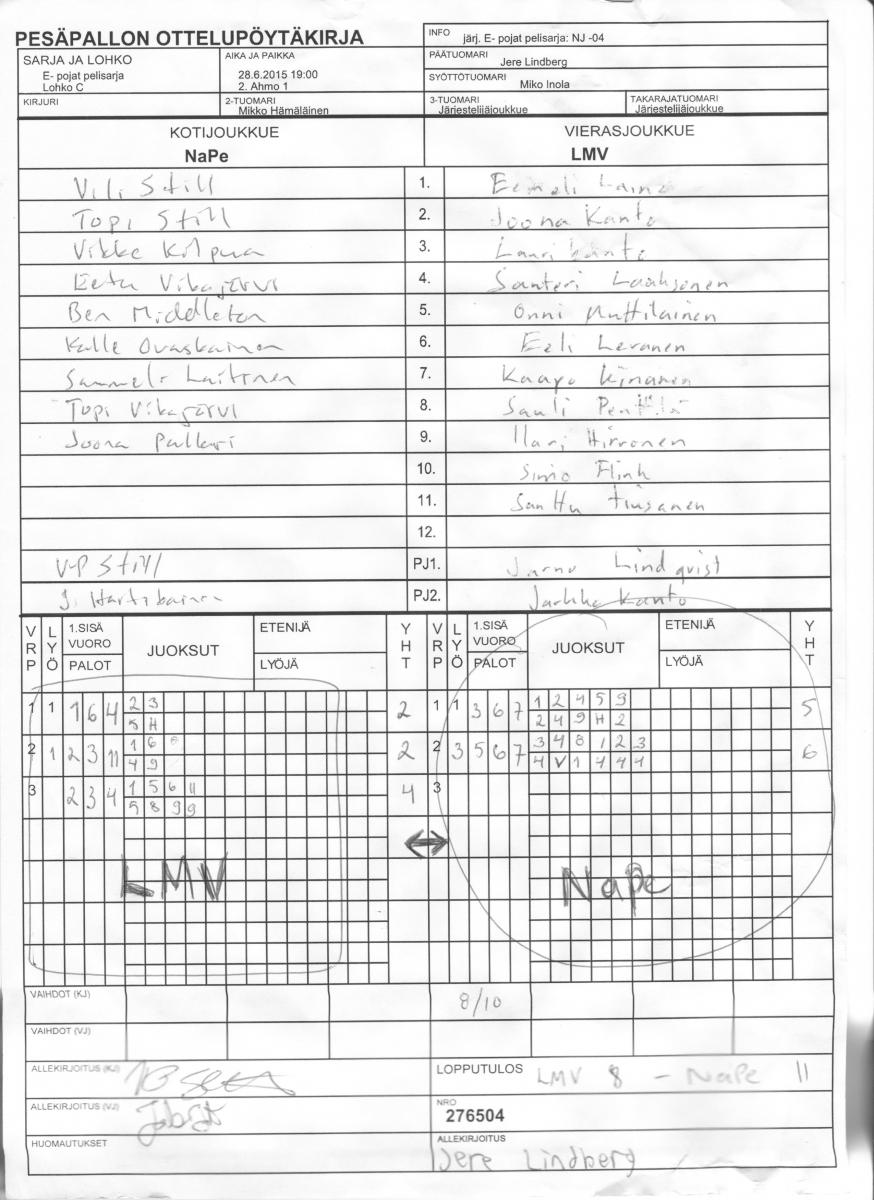 PESÄPALLON OTTELUPÖYTÄKIRJA
INFO järj. E- pojat pelisarja: NJ -04
SARJA JA LOHKO
E- pojat pelisarja
Lohko C
AIKA JA PAIKKA
28.6.2015 19:00
2. Ahmo 1
PÄÄTUOMARI
Jere Lindberg
SYÖTTÖTUOMARI
Miko Inola
KIRJURI
2-TUOMARI
Mikko Hämäläinen
3-TUOMARI
Järjestelijäjoukkue
TAKARAJATUOMARI
Järjestelijäjoukkue
KOTIJOUKKUE
NaPe
VIERASJOUKKUE
LMV
Vili Still 1. Eemeli Laine
Topi Still 2. Joona Kanto
Vikke 3. Lauri Kanto
Eetu Vikajärvi 4. Santeri Laaksonen
Ben Middleton 5. Onni Muttilainen
Kalle Ovaskainen 6. Eeli Levanen
Sammeli Laitinen 7. Kaapo Kinanen
Topi Vikajärvi 8. Sauli Penttilä
Joona Pulkari 9. Ilari Hirvonen
10. Simo Flink
11. Santtu Tiusanen
12.
V-P Still PJ1. Jarno Lindqvist
J. PJ2. Jarkko Kanto
VRP LYÖ 1.SISÄ VUORO PALOT JUOKSUT ETENIJÄ LYÖJÄ YHT VRP LYÖ 1.SISÄ VUORO PALOT JUOKSUT ETENIJÄ LYÖJÄ YHT
1 1 1 6 4 2 3 2 1 1 3 6 7 1 2 4 5 9 5
5 H 2 4 9 H 2
2 1 2 3 11 1 6 2 2 3 5 6 7 3 4 8 1 2 3 6
4 9 4 V 1 4 4 4
3 2 3 4 1 5 6 11 4 3
5 8 9 9
↔
LMV NaPe
VAIHDOT (KJ) 8/10
VAIHDOT (VJ)
ALLEKIRJOITUS (KJ)
LOPPUTULOS LMV 8 - NaPe 11
ALLEKIRJOITUS (VJ)
NRO
276504
HUOMAUTUKSET
ALLEKIRJOITUS
Jere Lindberg